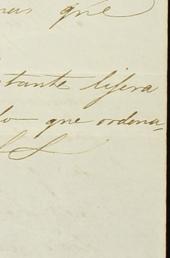 que
tante lijera
lo que ordena,